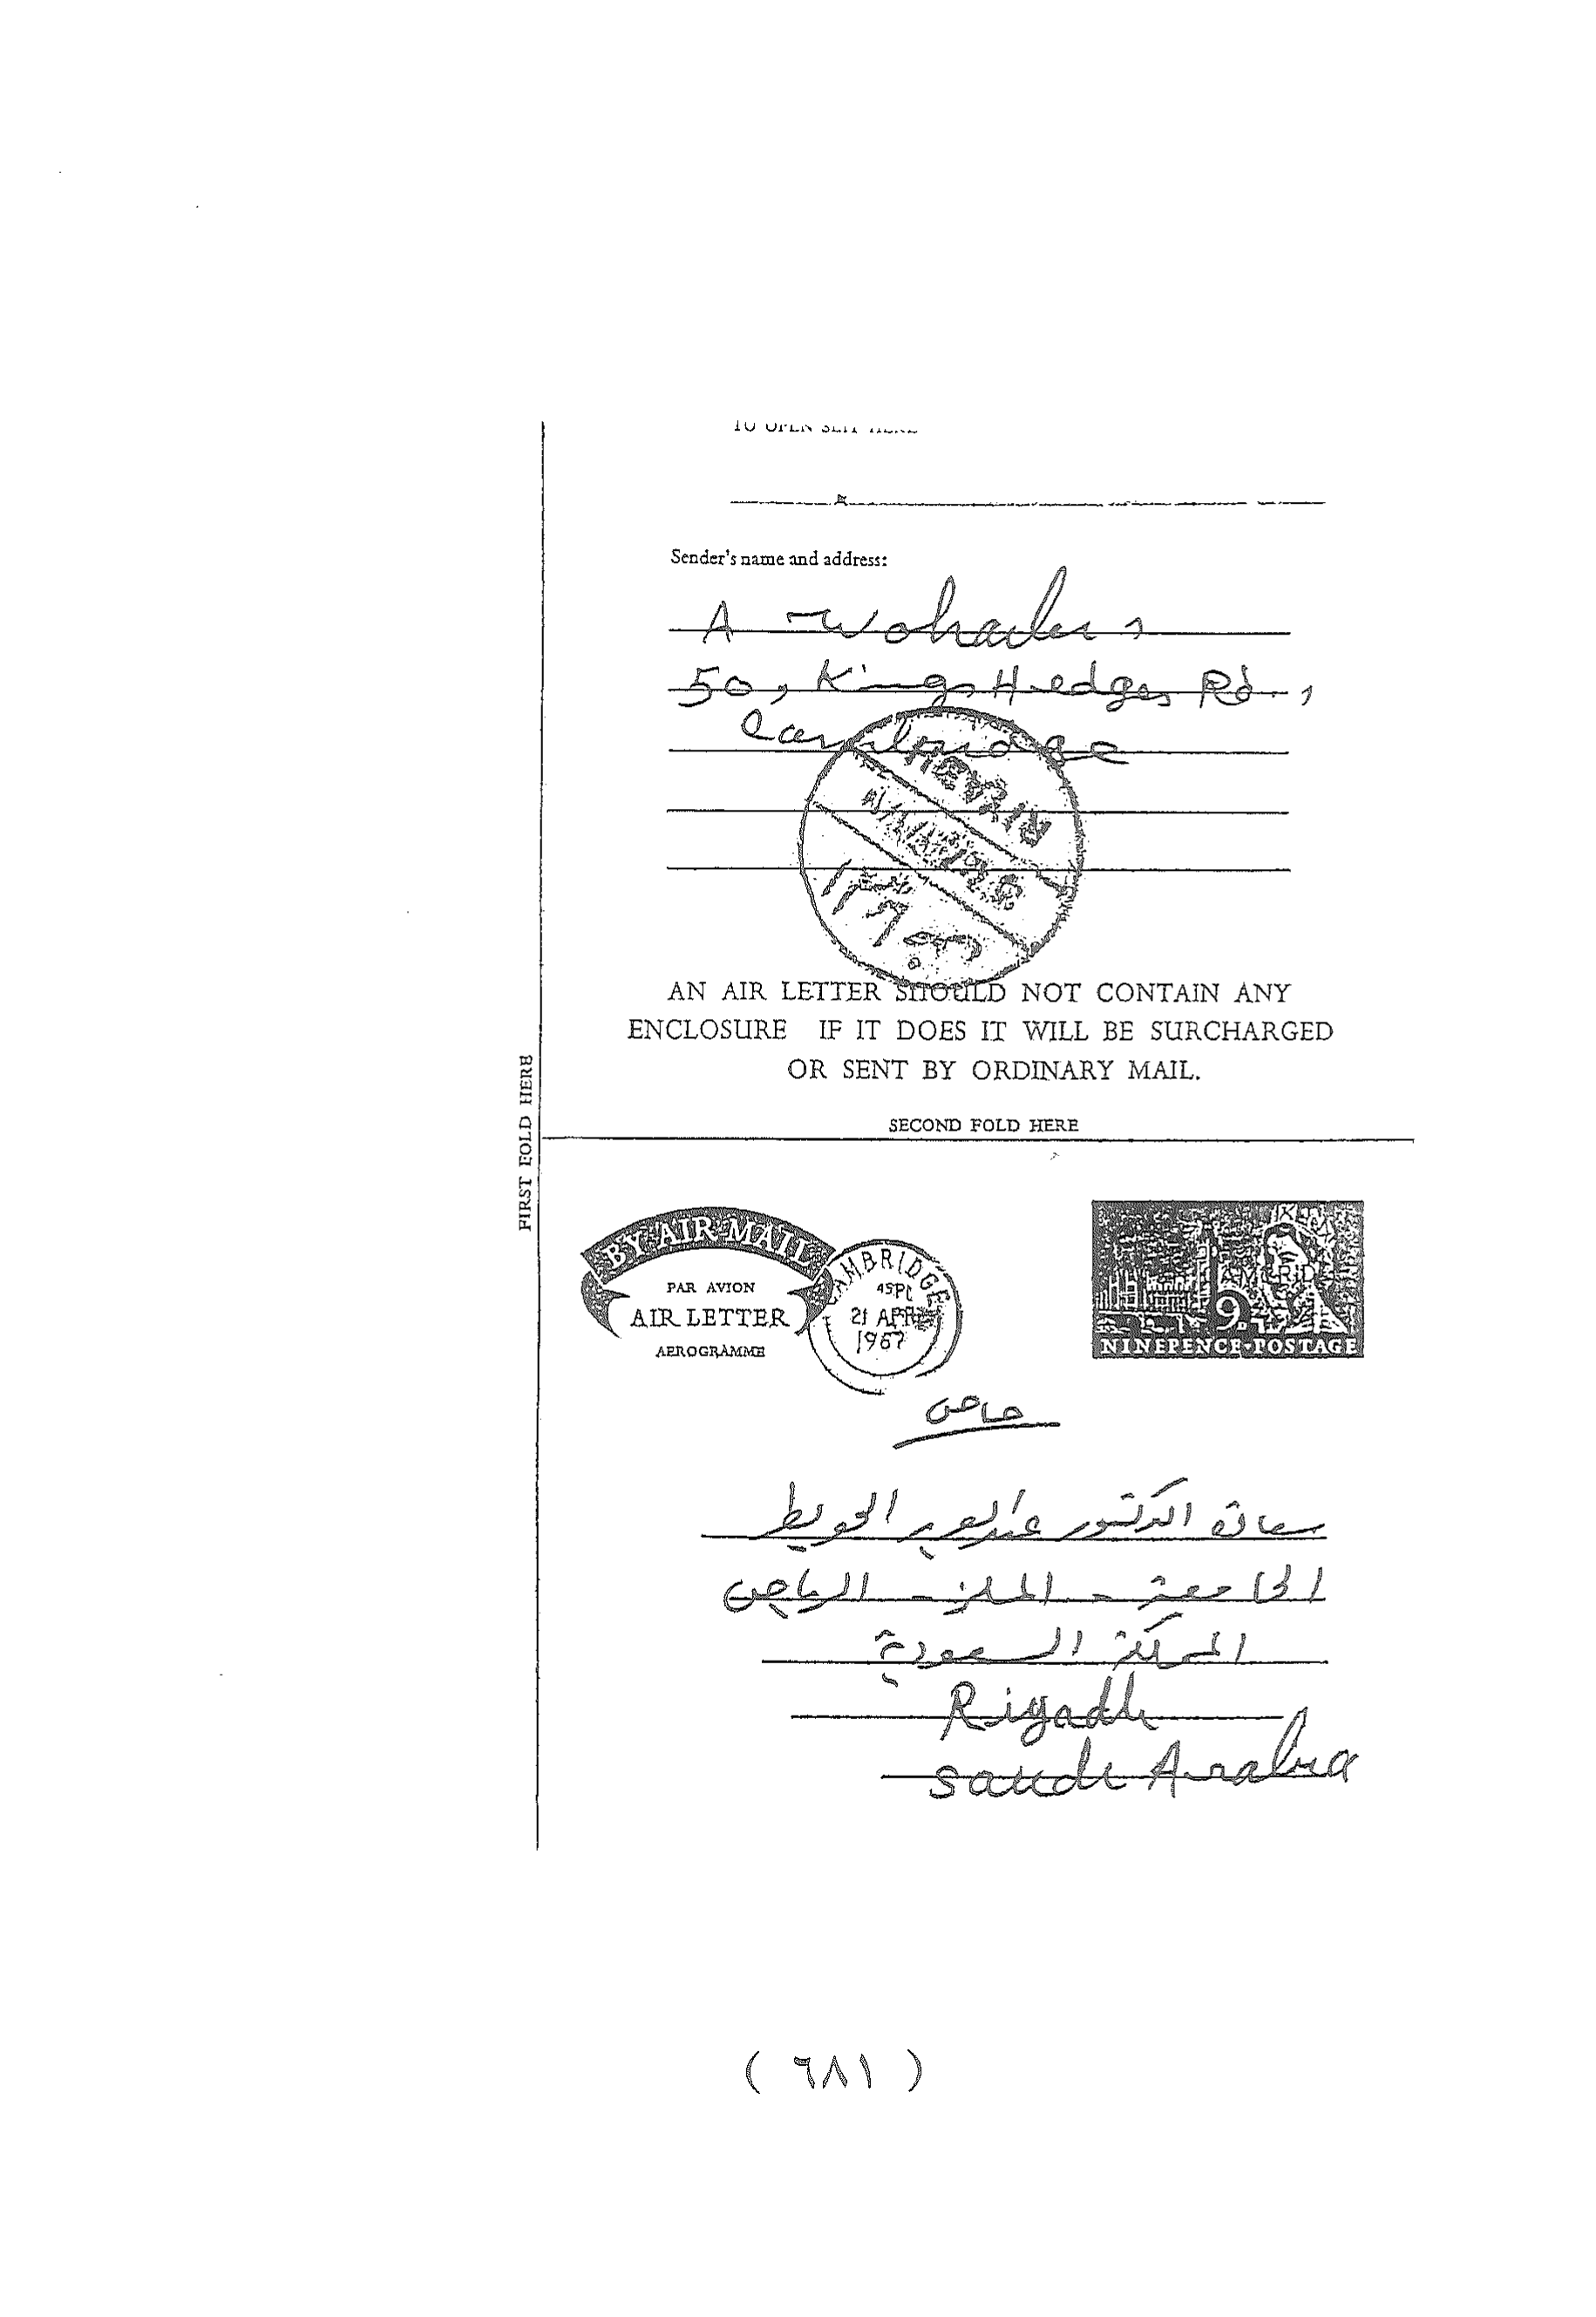 TO OPEN SLIT HERE
Sender's name and address:
A
50, Kings Hedges Rd.,
Cambridge
AN AIR LETTER SHOULD NOT CONTAIN ANY
ENCLOSURE IF IT DOES IT WILL BE SURCHARGED
OR SENT BY ORDINARY MAIL.
FIRST FOLD HERE
SECOND FOLD HERE
BY AIR MAIL
PAR AVION
AIR LETTER
AEROGRAMME
CAMBRIDGE
21 APR
1967
9
NINEPENCE POSTAGE
خاص
سعادة الدكتور عبدالعزيز الخويطر
الجامعة - الملز - الرياض
المملكة السعودية
Riyadh
Saudi Arabia
( ٦٨١ )